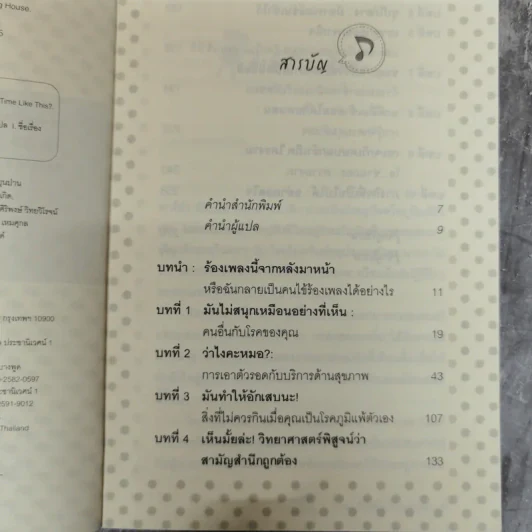 g House.
Time Like This?
ปล I. ชื่อเรื่อง
กรุงเทพฯ 10900
ประชานิเวศน์ 1
0-2582-0597
ชานิเวศน์ 1
2591-9012
Thailand
สารบัญ
คำนำสำนักพิมพ์ 7
คำนำผู้แปล 9
บทนำ : ร้องเพลงนี้จากหลังมาหน้า
หรือฉันกลายเป็นคนไข้ร้องเพลงได้อย่างไร 11
บทที่ 1 มันไม่สนุกเหมือนอย่างที่เห็น :
คนอื่นกับโรคของคุณ 19
บทที่ 2 ว่าไงคะหมอ?:
การเอาตัวรอดกับบริการด้านสุขภาพ 43
บทที่ 3 มันทำให้อักเสบนะ!
สิ่งที่ไม่ควรกินเมื่อคุณเป็นโรคภูมิแพ้ตัวเอง 107
บทที่ 4 เห็นมั้ยล่ะ! วิทยาศาสตร์พิสูจน์ว่า
สามัญสำนึกถูกต้อง 133